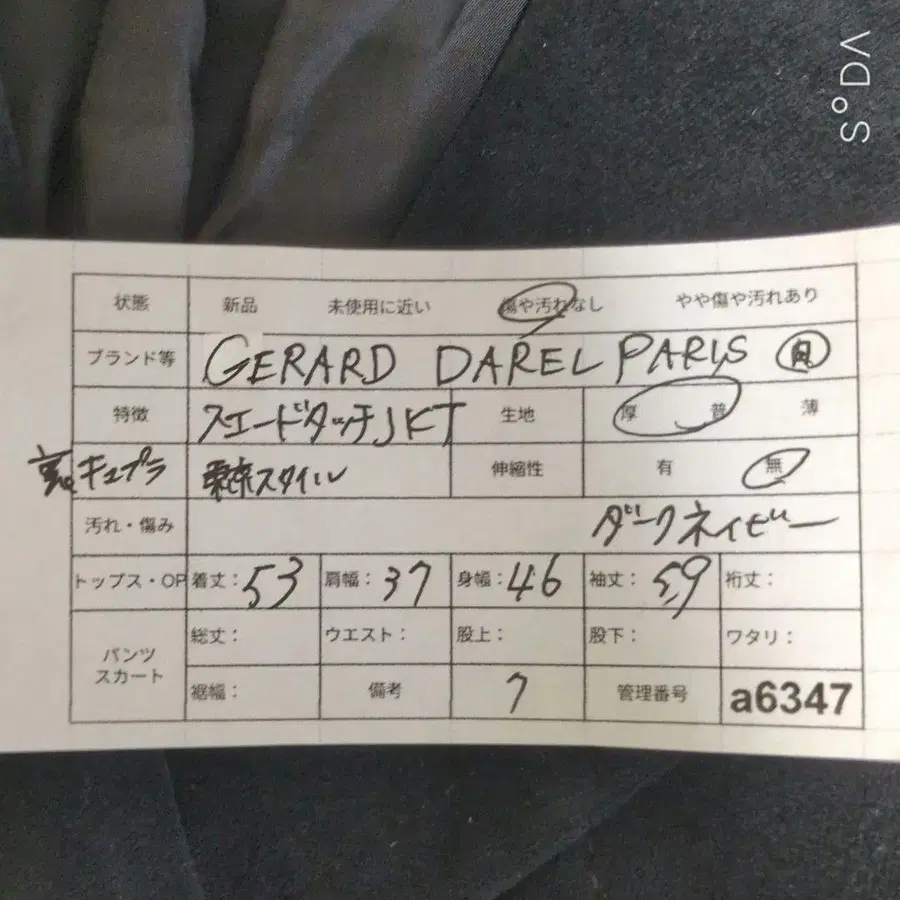 VD°S
状態 新品 未使用に近い 傷や汚れなし やや傷や汚れあり
ブランド等 GERARD DAREL PARIS
特徴 スエードタッチJKT 生地 厚 普 薄
裏 キュプラ 東京スタイル 伸縮性 有 無
汚れ・傷み ダークネイビー
トップス・OP 着丈：53 肩幅：37 身幅：46 袖丈：59 裄丈：
パンツ スカート 総丈： ウエスト： 股上： 股下： ワタリ：
裾幅： 備考 7 管理番号 a6347